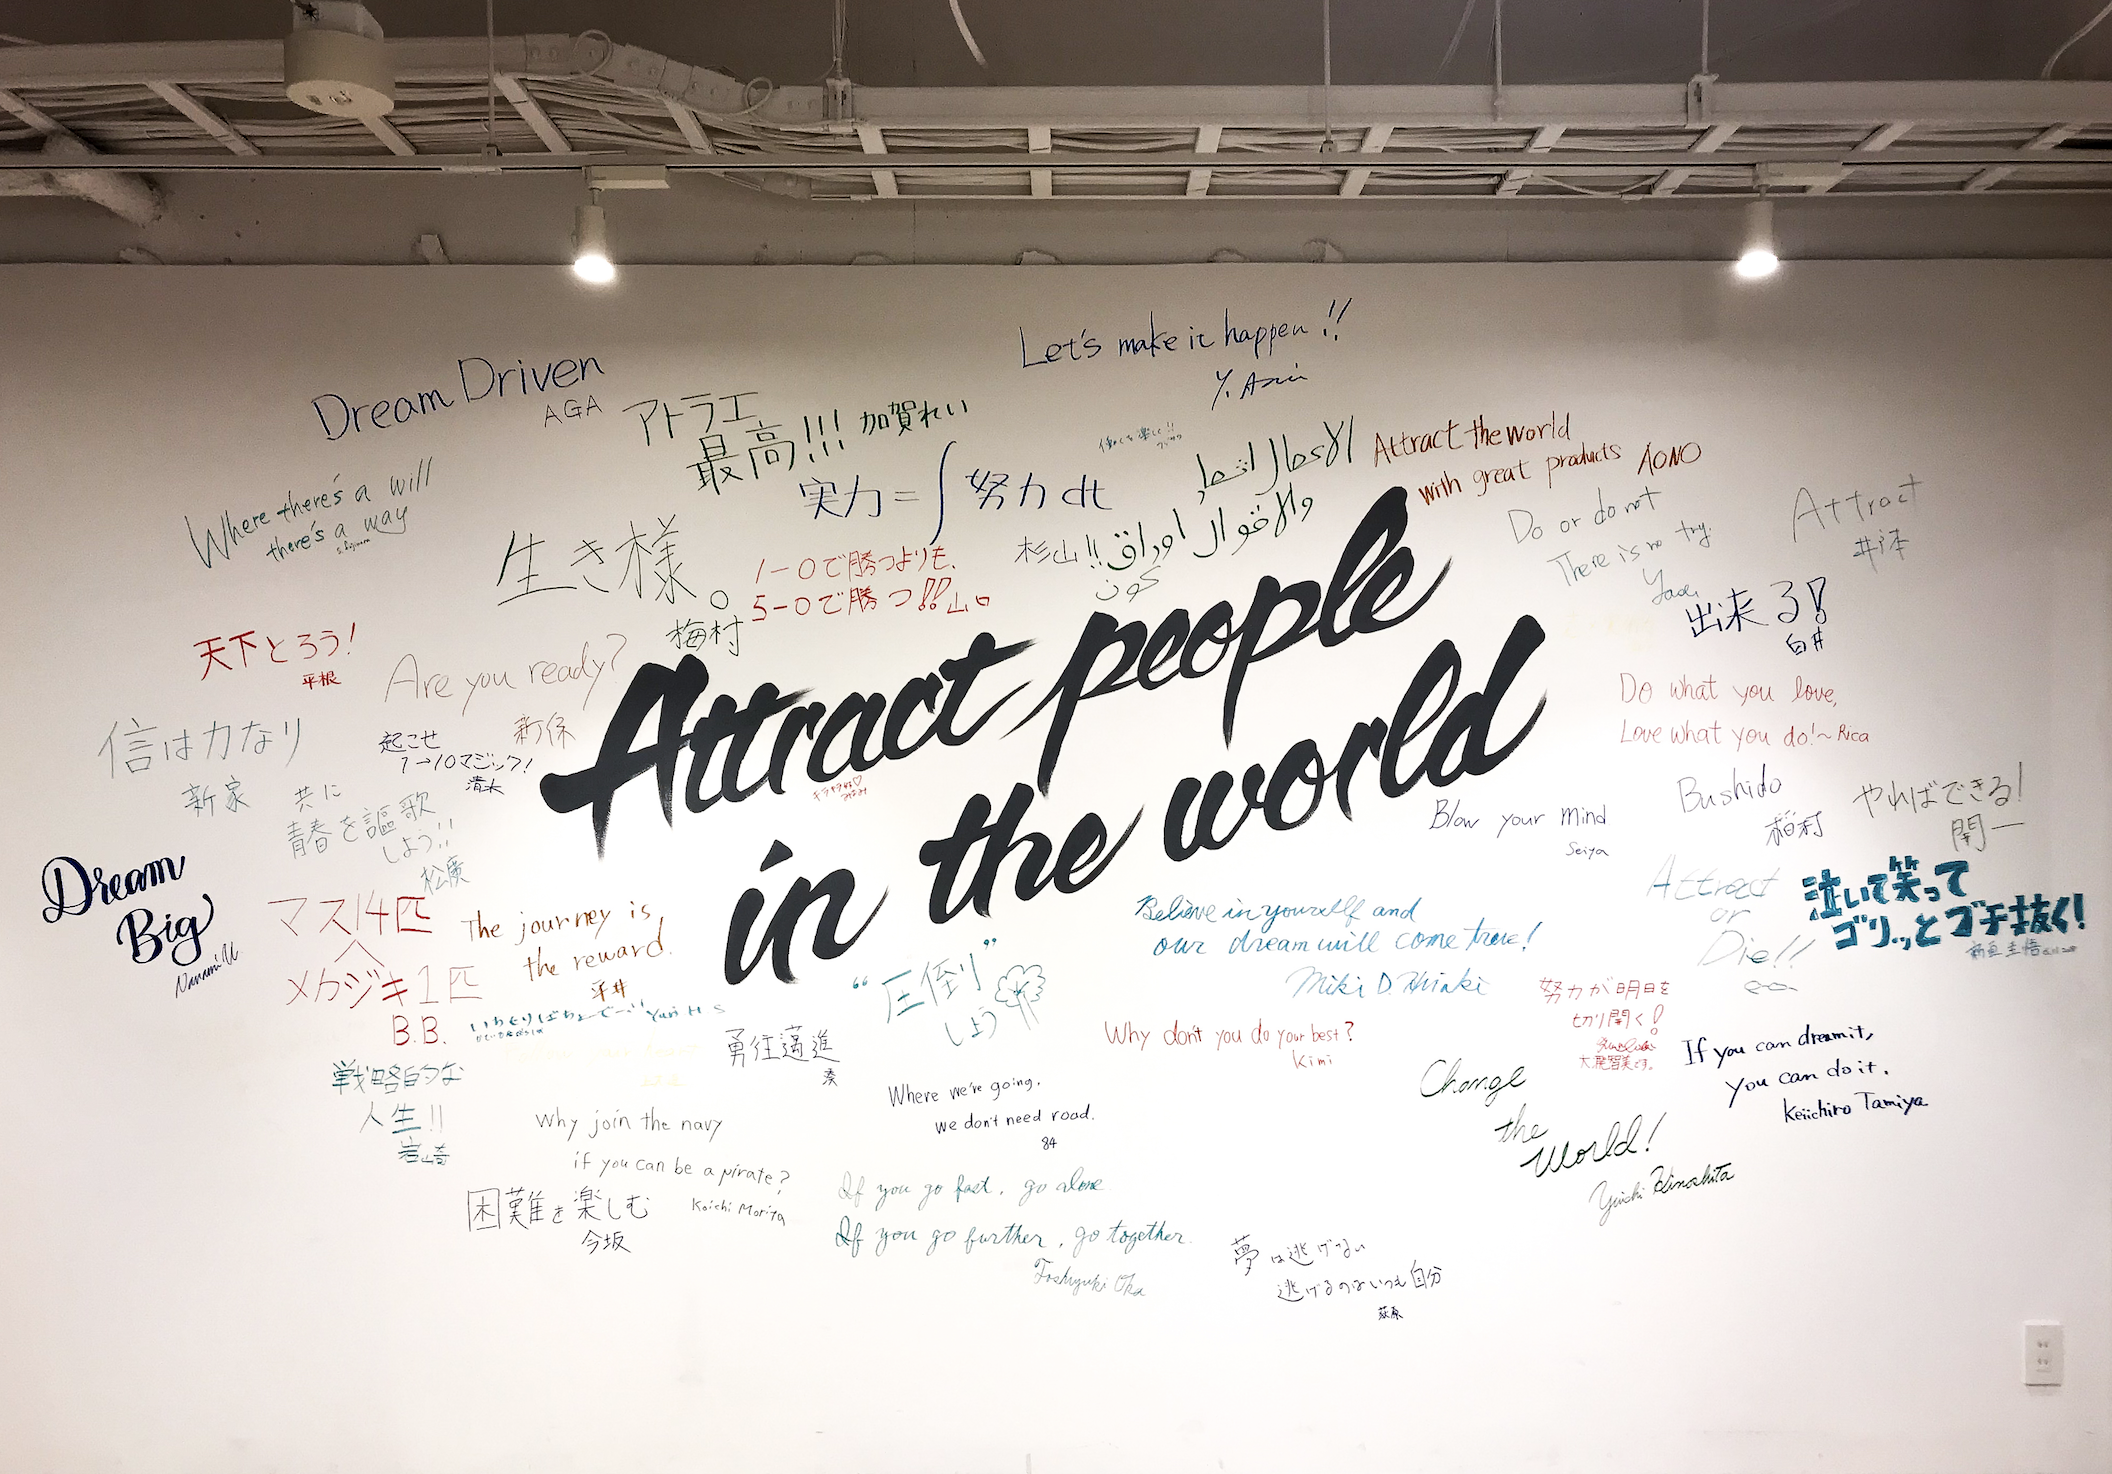 Let's make it happen!!
Y. Asai
Dream Driven
AGA
アトラエ
最高!!! 加賀れい
実力=∫努力dt
الاعمال اشجار
والاقوال اوراق
杉山!!
كون
Attract the world
with great products AONO
Where there's a will
there's a way
生き様。
梅村
1-0で勝つよりも、
5-0で勝つ!!山口
Do or do not
There is no try.
Attract
出来る!
白井
天下とろう!
平根
Are you ready?
新保
Attract people
in the world
Do what you love,
Love what you do!~Rica
信は力なり
新家
起こせ
1→10マジック!
清水
共に
青春を謳歌
しよう!!
松廣
Blow your mind
Seiya
Bushido
稲村
やればできる!
開一
Dream
Big
Nanami U
マス14匹
へ
メカジキ1匹
B.B.
The journey is,
the reward.
平井
Believe in yourself and
our dream will come true!
Attract
or
Die!!
泣いて笑って
ゴリッとブチ抜く!
"圧倒"
しよう
いちゃりばちょーでー!! Yuri H S
勇往邁進
湊
Why don't you do your best?
Kimi
努力が明日を
切り開く!
大飛智美です。
If you can dream it,
you can do it.
Keiichiro Tamiya
戦略的な
人生!!
岩崎
Where we're going,
we don't need road.
84
Change
the
World!
Yuichi Hinoshita
Why join the navy
if you can be a pirate?
Koichi Moriya
困難を楽しむ
今坂
If you go fast, go alone
If you go further, go together.
Toshiyuki Oka
夢は逃げない
逃げるのはいつも自分
荻原